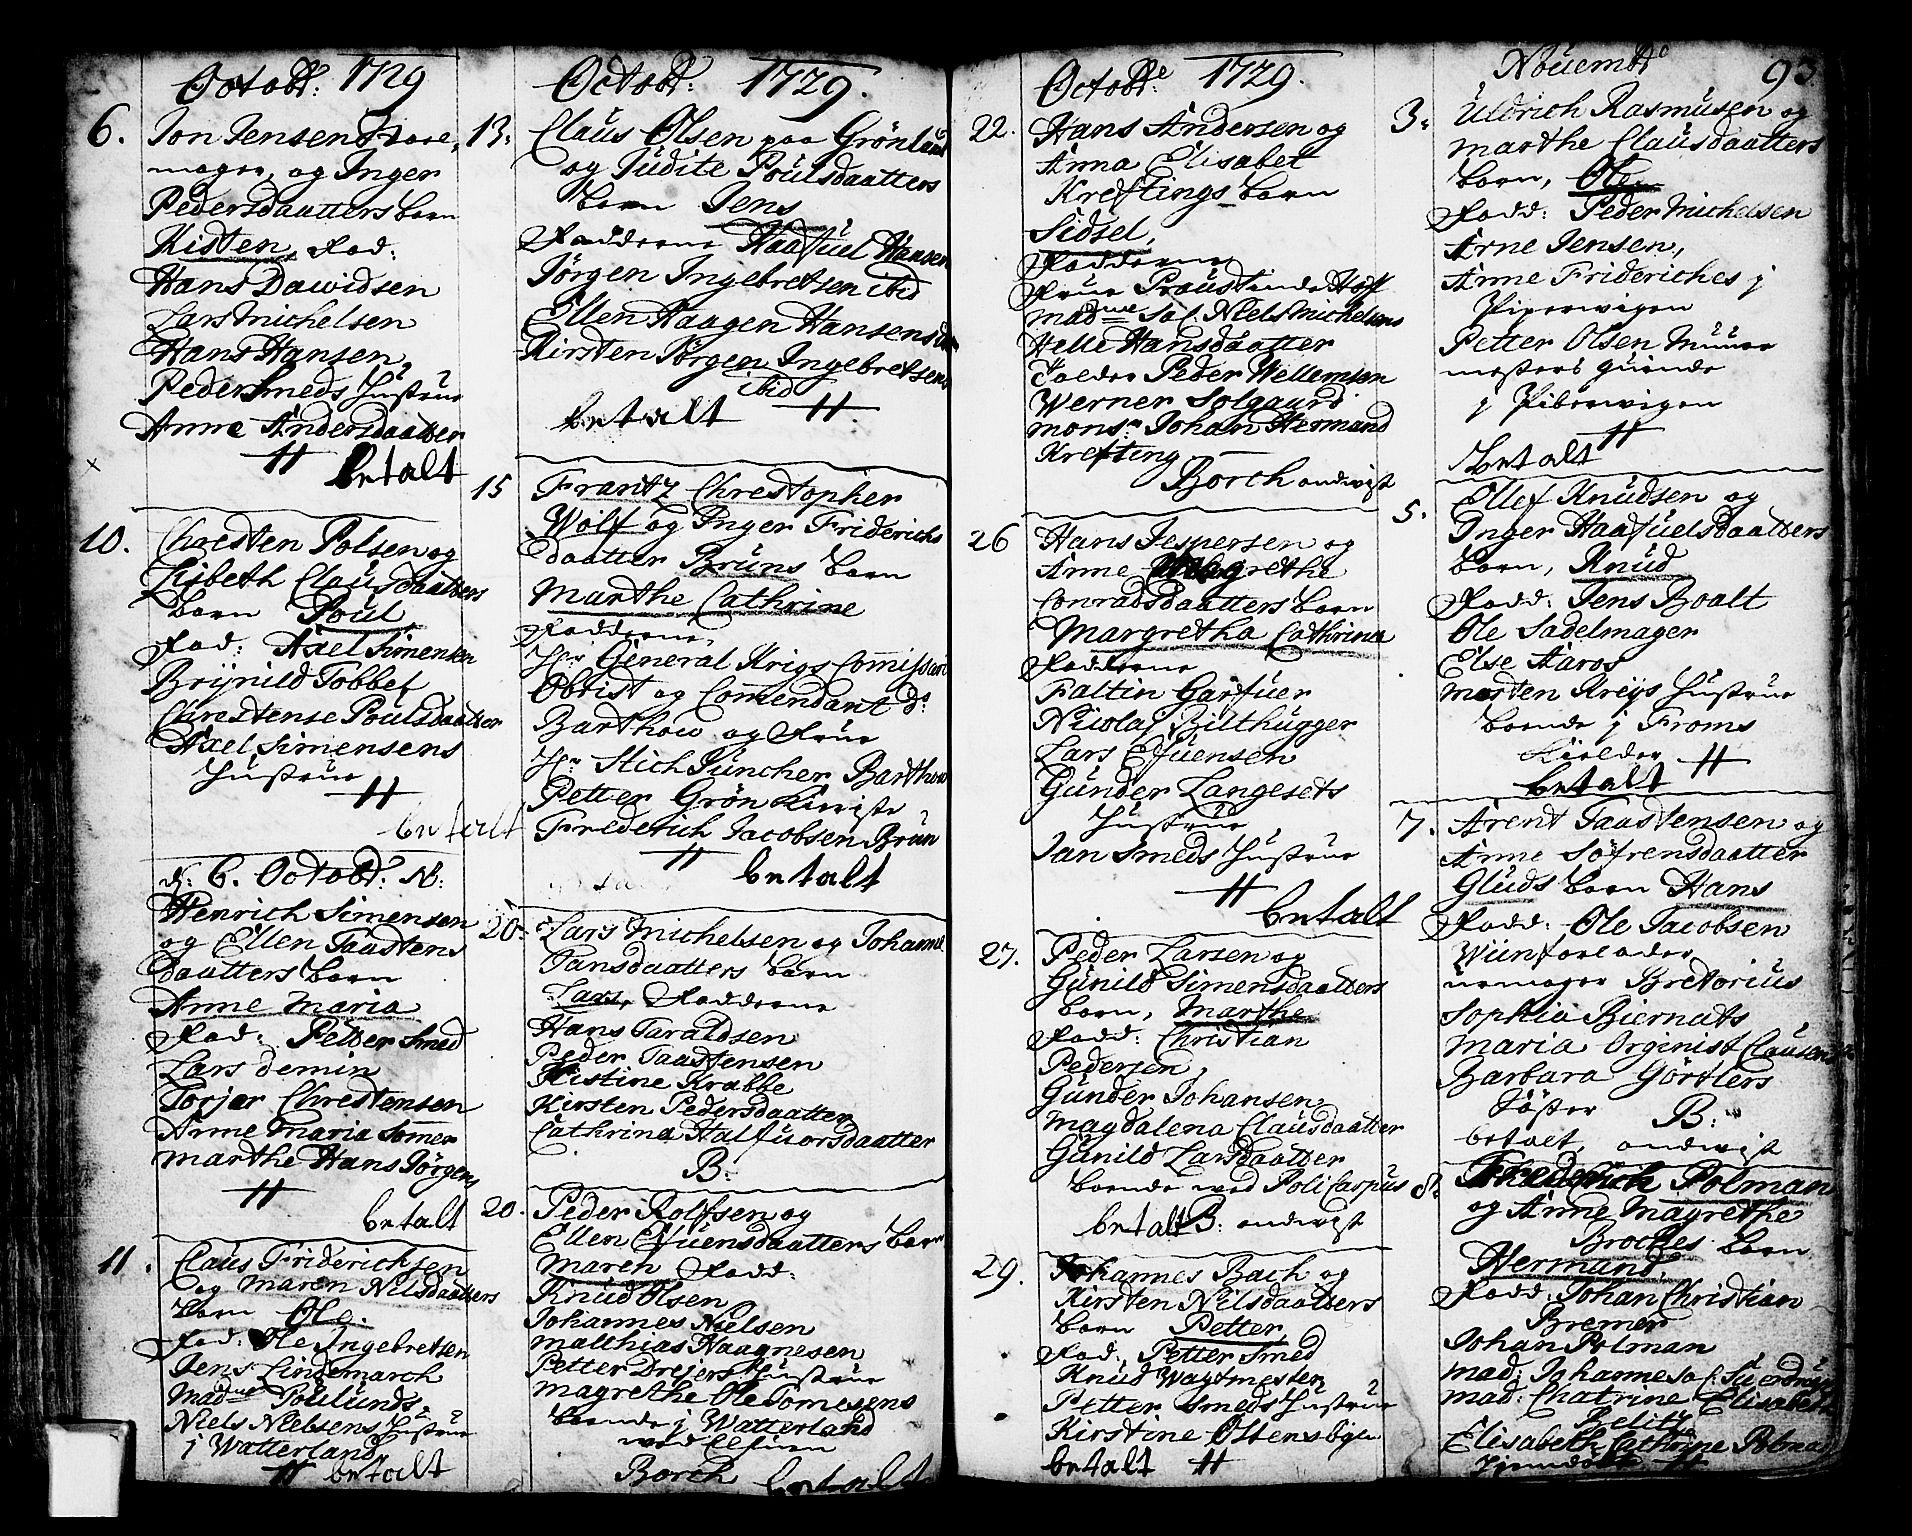 Octobr: 1729
6. Jon Jensen
mager, og Inger
Pedersdaatters barn
Kisten, Fad:
Hans Dawidsen
Lars Michelsen
Hans Hansen
Peder Smeds Hustrue
Anne Andersdaatter
betalt
10. Chresten Polsen og
Lisbeth Clausdaatters
barn Poul
Fad: Axel Simensen
Brynild Tobbef
Chrestense Poulsdaatter
Axel Simensens
Hustrue
betalt
d: 6. Octobr: N:
Henrich Simensen
og Ellen Taastens
daatters barn
Anne Maria
Fad: Petter Smed
Lars demin
Torjer Chrestensen
Anne Maria Somer
Marthe Hans Jörgens
betalt
11. Claus Friderichsen
og Maren Nilsdaatters
barn Ole.
Fad: Ole Ingebretsen
Jens Lindemarch
Madme Poulunds
Niels Nielsens Hustrue
j Watterland
betalt
Octobr: 1729.
13. Claus Olsen paa Grönland
og Judite Poulsdaatters
barn Jens
Fadderne Haafuel Hansen
Jörgen Ingebretsen ibid
Ellen Haagen Hansens
Kirsten Jörgen Ingebretsens
ibid
betalt
15 Frantz Chrestopher
Wolf og Inger Friderichs
daatter Bruns barn
Marthe Cathrine
Fadderne,
Hr General Krigs Comissari
Obrist og Comendant
Barthow og Frue
Hr Stich Juncher Barthow
Petter Grön
Frederich Jacobsen Brun
betalt
20. Lars Michelsen og Johanne
Jansdaatters barn
Lars, Fadderne
Hans Taraldsen
Peder Taastensen
Kistine Krabbe
Kirsten Pedersdaatter
Cathrina Halfuorsdaatter
B:
20. Peder Rolfsen og
Ellen Efuensdaatters barn
Maren Fadd:
Knud Olsen
Johannes Nielsen
Matthias Haagnesen
Petter Drejers Hustrue
Magrethe Ole Tomesens
boende j Watterland
Borch betalt
Octobr: 1729.
22. Hans Andersen og
Anna Elisabet
Kreftings barn
Sidsel,
Fadderne
Frue Praustinde Hoff
Madme Sal. Niels Michelsens
Helle Hansdaatter
Tolder Peder Wellemsen
Werner Solgaard
Monsr Johan Hermand
Krefting
Borch andvist
26 Hans Jespersen og
Anne Magrethe
Conradsdaatters barn
Margretha Cathrina
Fadderne
Faltin Garfuer
Nicolaf Bilthugger
Lars Efuensen
Gunder Langesets
Hustrue
Jan Smeds Hustrue
betalt
27. Peder Larsen og
Gunild Simensdaatters
barn, Marthe
Fadd: Christian
Pedersen,
Gunder Johansen
Magdalena Clausdaatter
Gunild Larsdaatter
boende ved Poli Carpus
betalt B: andvist
29. Johannes Bach og
Kirsten Nilsdaatters
barn Petter,
Fad: Petter Smed
Knud Wagtmester
Petter Smeds Hustrue
Kirstine Ostensbÿe
betalt
Nouembr
93
3. Uldrich Rasmusen og
Marthe Clausdaatters
barn, Ole
Fadd: Peder Michelsen
Arne Jensen,
Anne Frideriches j
Piperwigen
Petter Olsen Muur
mesters quinde
j Piberwigen
betalt
5. Ellef Knudsen og
Inger Haafuelsdaatters
barn, Knud
Fadd: Jens Boalt
Ole Sadelmager
Else Aaros
Morten Kreÿs Hustrue
boende j Froms
Kielder
betalt
7. Arent Taastensen og
Anne Söfrensdaatter
Gluds barn Hans
Fadd: Ole Jacobsen
Wiinforlader
urmager Bretorius
Sophia Biernats
Maria Orgenist Clausens
Barbara Görtlers
Söster B:
betalt, andvist
8. Frederich Polman
og Anne Magrethe
Brockes barn
Hermand,
Fadd: Johan Christian
Bremer
Johan Polman
Mad: Johanne Sal.
Mad: Chatrine Elisabeth
Elisabeth Cathrine Polman